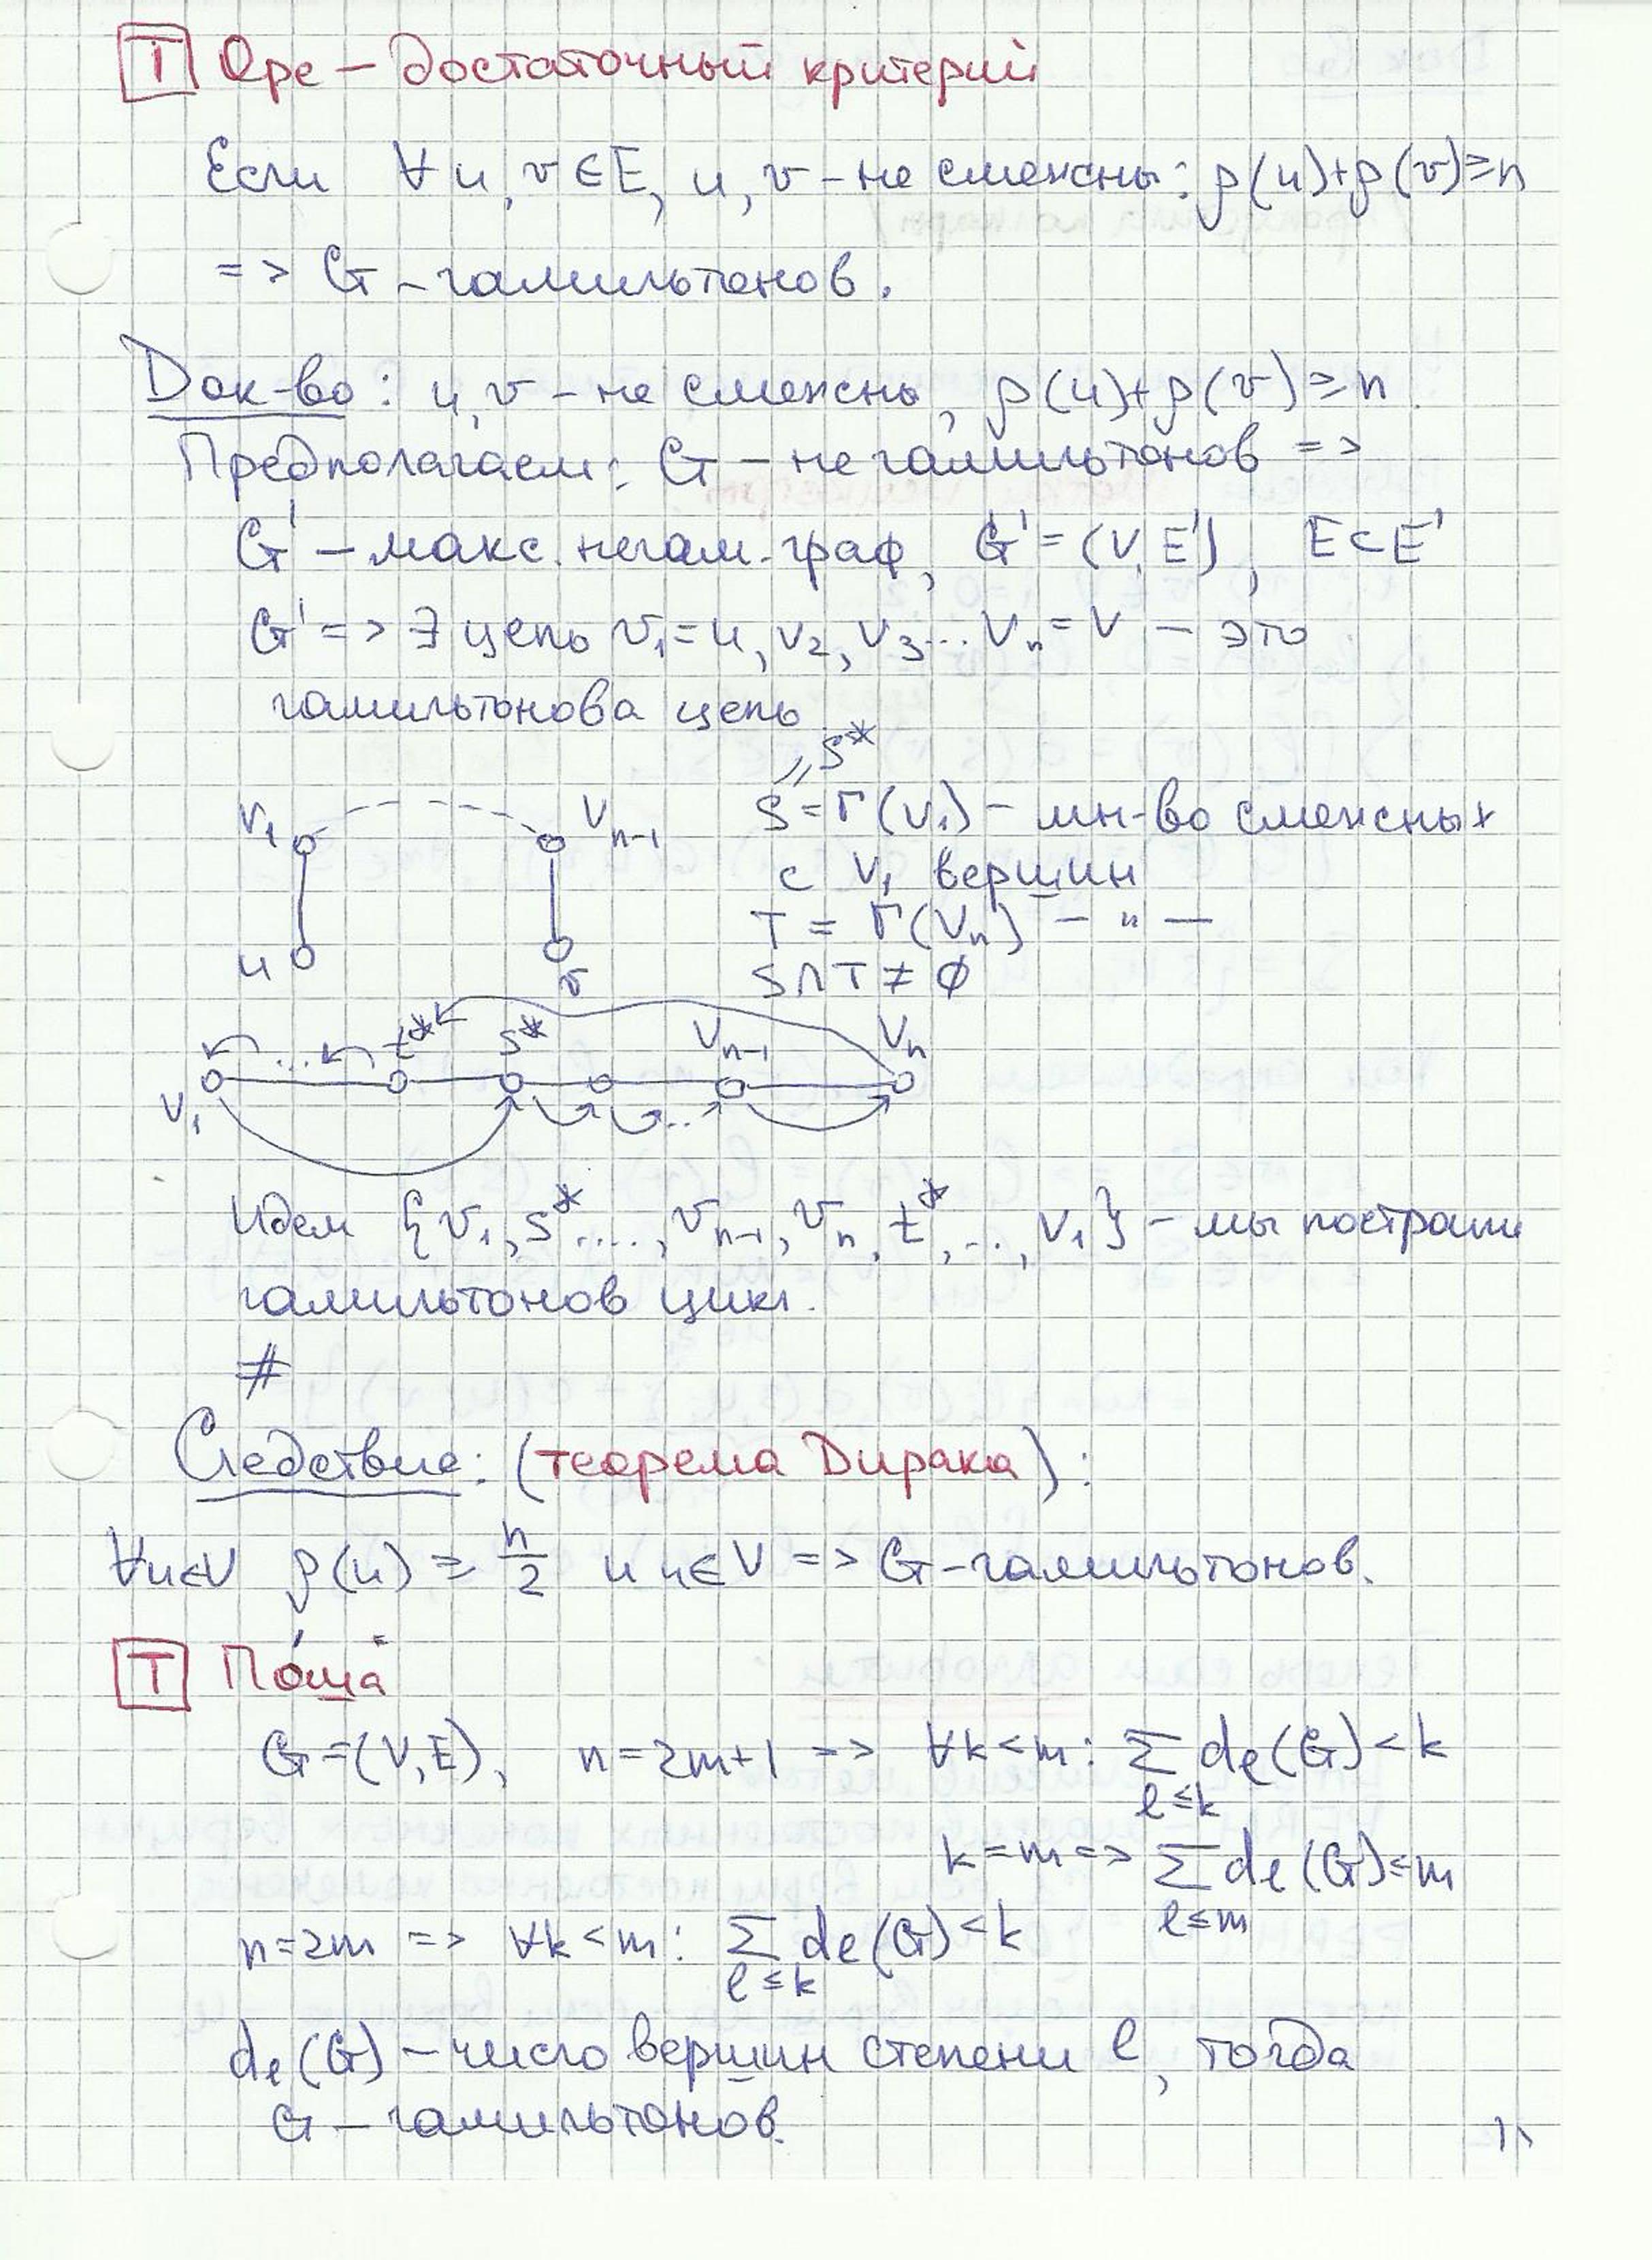 Т Оре – достаточный критерий
Если ∀ u, v ∈ E, u, v – не смежны: ρ(u)+ρ(v)≥n
=> G – гамильтонов.
Док-во: u, v – не смежны, ρ(u)+ρ(v)≥n.
Предполагаем: G – не гамильтонов =>
G' – макс. негам. граф, G'=(V,E'), E⊂E'
G' => ∃ цепь v₁=u, v₂, v₃...vₙ=v – это
гамильтонова цепь
„S*
v₁ vₙ₋₁ S=Γ(v₁) – мн-во смежных
с v₁ вершин
T = Γ(vₙ) – " –
u v S∩T≠∅
... t* s* vₙ₋₁ vₙ
v₁ ..
Идем {v₁, s*...., vₙ₋₁, vₙ, t*, ..., v₁} – мы построили
гамильтонов цикл.
#
Следствие: (теорема Дирака):
∀u∈V ρ(u) ≥ n/2 и u∈V => G – гамильтонов.
Т По́ша
G=(V,E), n=2m+1 => ∀k<m: ∑ dₗ(G)<k
l≤k
k=m => ∑ dₗ(G)≤m
l≤m
n=2m => ∀k<m: ∑ dₗ(G)<k
l≤k
dₗ(G) – число вершин степени l, тогда
G – гамильтонов.